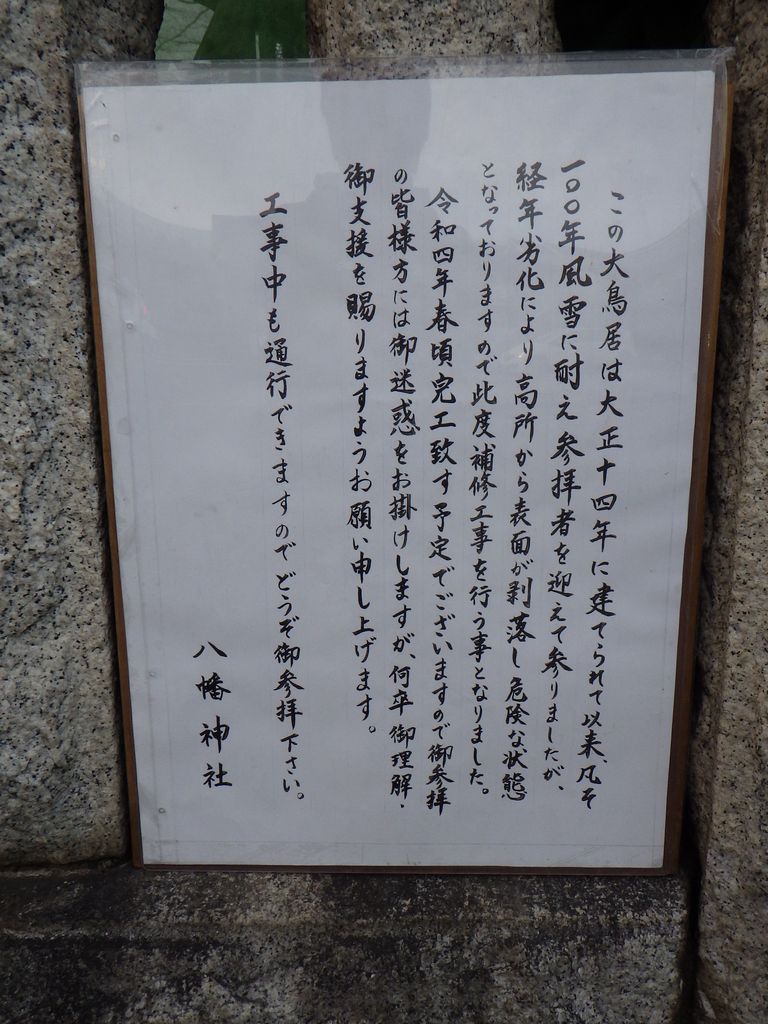 この大鳥居は大正十四年に建てられて以来、凡そ
一〇〇年風雪に耐え参拝者を迎えて参りましたが、
経年劣化により高所から表面が剥落し危険な状態
となっておりますので此度補修工事を行う事となりました。
令和四年春頃完工致す予定でございますので御参拝
の皆様方には御迷惑をお掛けしますが、何卒御理解・
御支援を賜りますようお願い申し上げます。
工事中も通行できますのでどうぞ御参拝下さい。
八幡神社